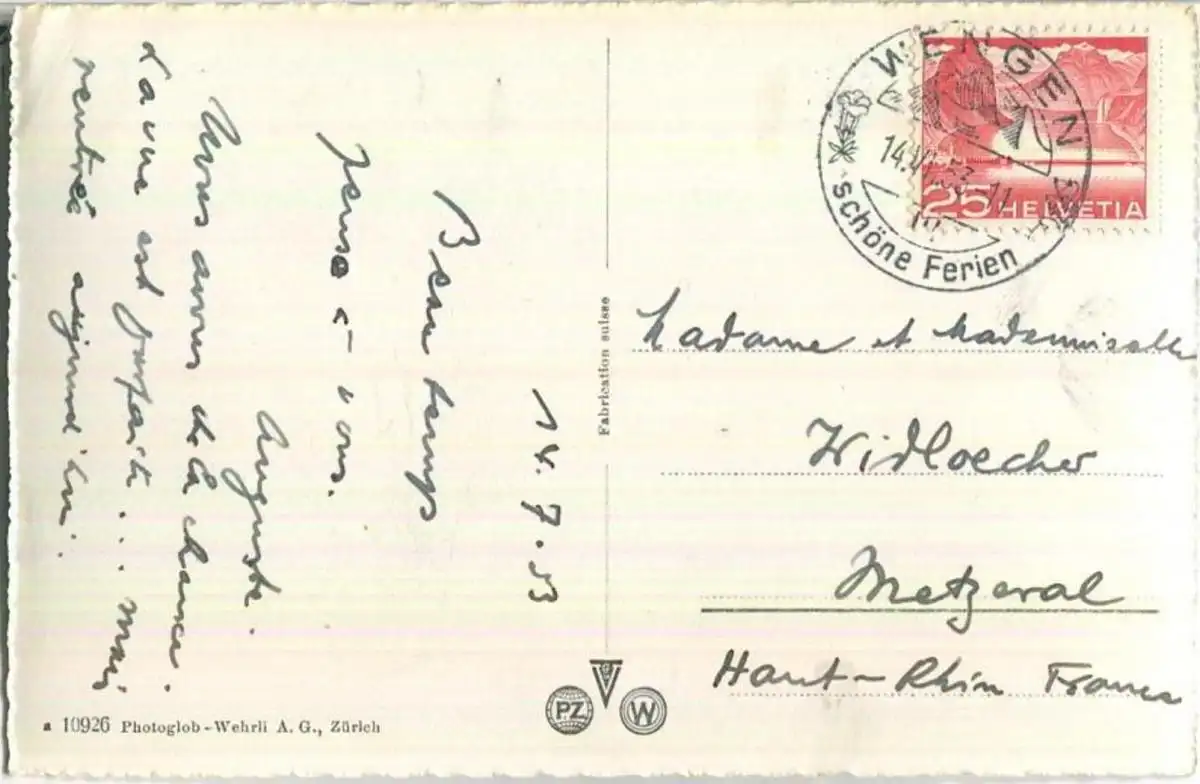 14.7.53
Beau temps
Pense à vous.
Auguste.
Nous avons de la chance
La vue est parfaite ... mais
rentré aujourd'hui.
Fabrication suisse
WENGEN
14.VII.53-11
schöne Ferien
25 HELVETIA
Madame et Mademoiselle
Widloecher
Metzeral
Haut-Rhin France
a 10926 Photoglob-Wehrli A. G., Zürich
PZ
VG
W